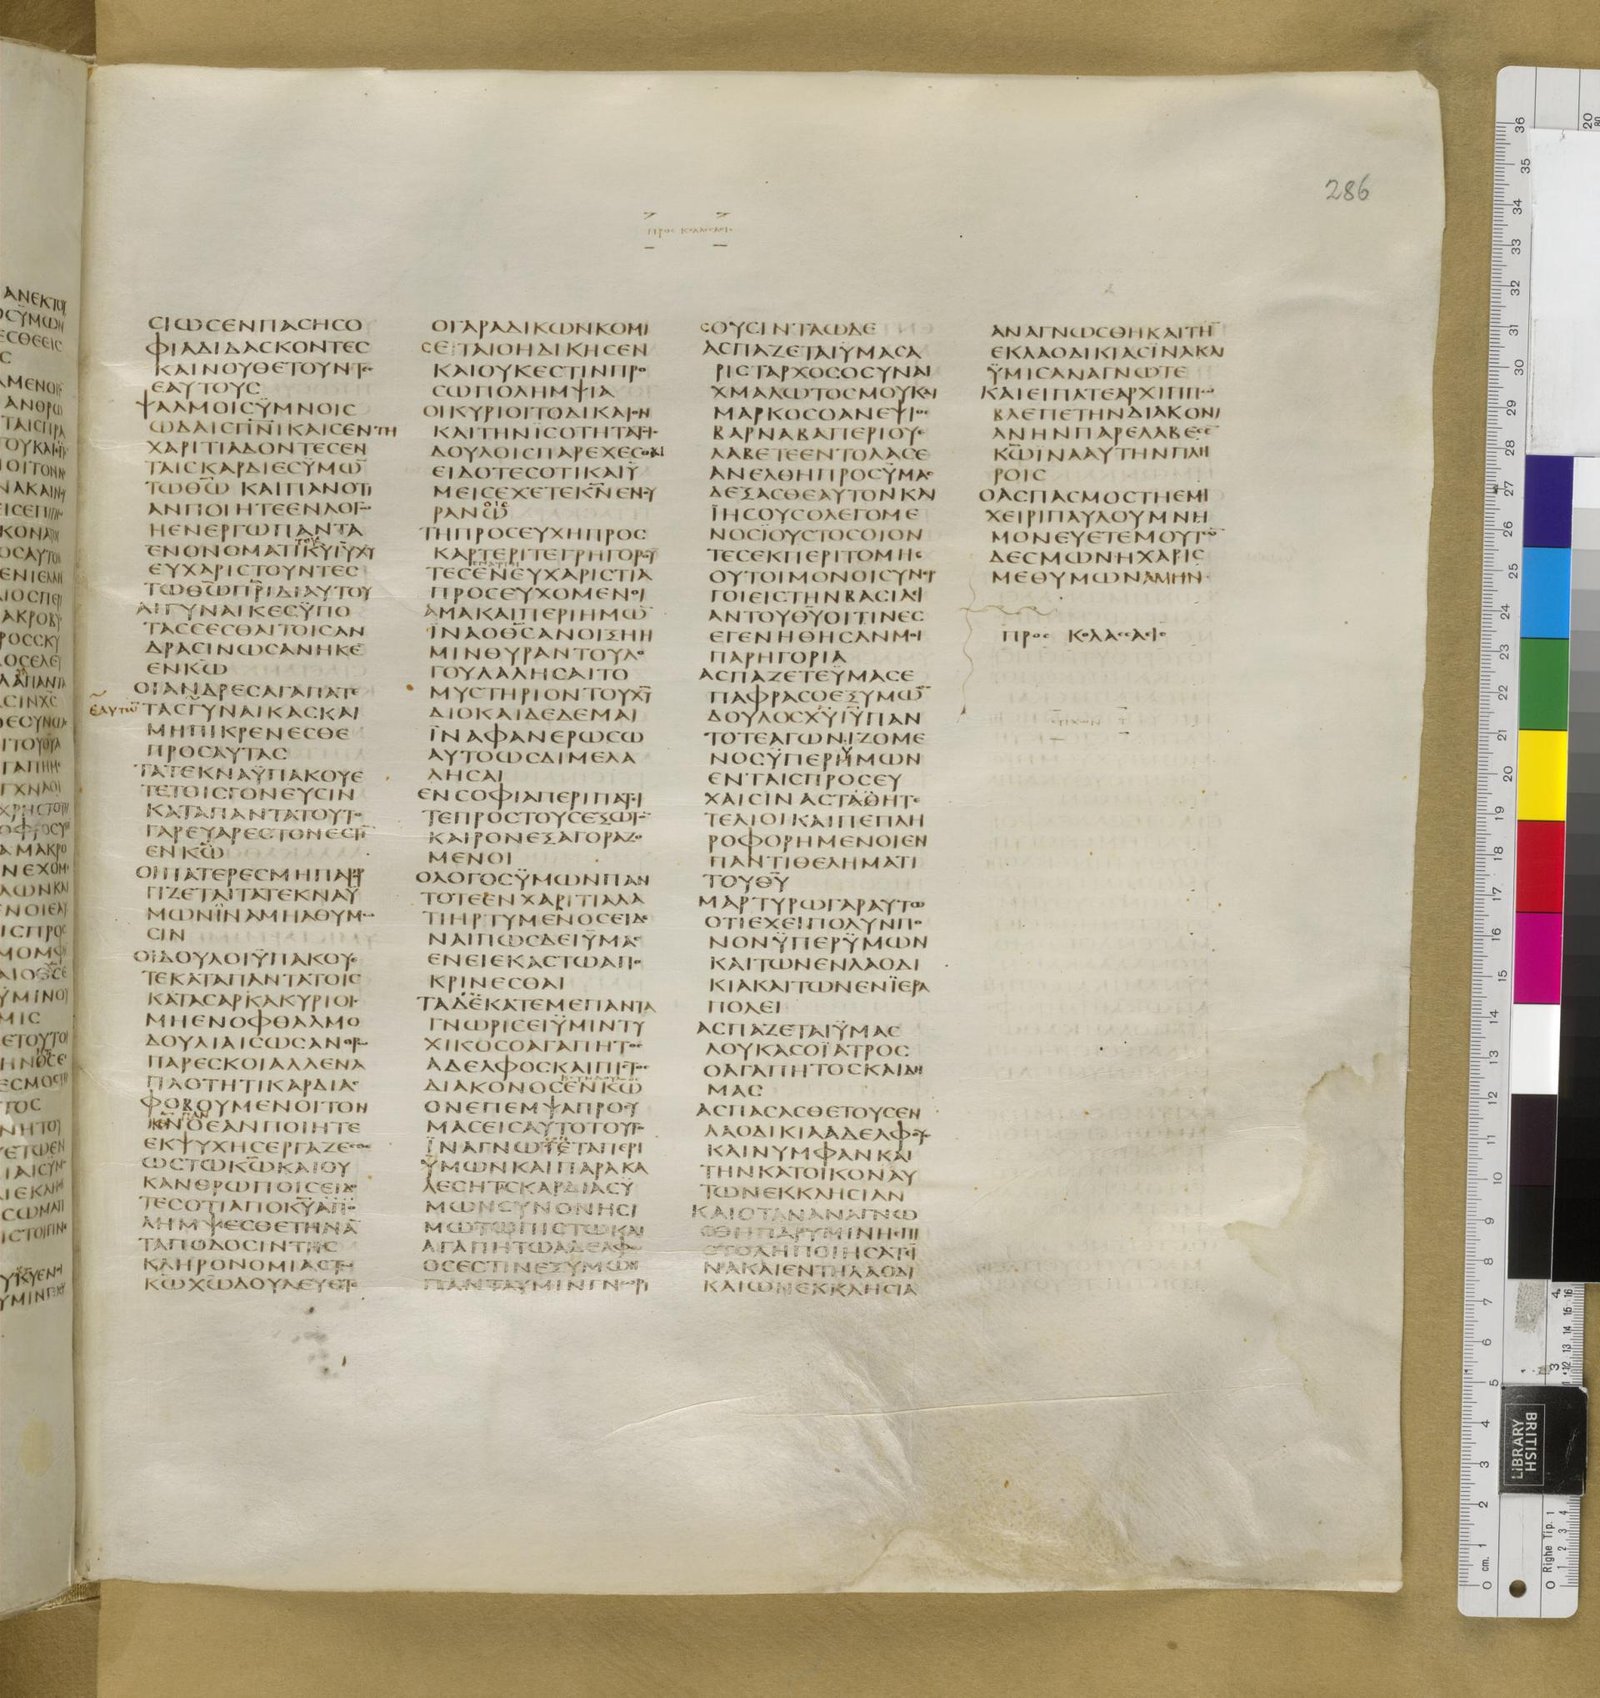 286
ΠΡΟΣ ΚΟΛΑΣΣΑΕΙΣ
ϹΙΩϹΕΝΠΑϹΗϹΟ
ΦΙΑΔΙΔΑϹΚΟΝΤΕϹ
ΚΑΙΝΟΥΘΕΤΟΥΝΤΕϹ
ΕΑΥΤΟΥϹ
ΨΑΛΜΟΙϹΫΜΝΟΙϹ
ΩΔΑΙϹΠΝΙΚΑΙϹΕΝΤΗ
ΧΑΡΙΤΙΑΔΟΝΤΕϹΕΝ
ΤΑΙϹΚΑΡΔΙΕϹΥΜΩ̅
ΤΩΘΩ̅ ΚΑΙΠΑΝΟΤΙ
ΑΝΠΟΙΗΤΕΕΝΛΟΓΩ
ΗΕΝΕΡΓΩΠΑΝΤΑ
ΕΝΟΝΟΜΑΤΙΚΥΙΥΧΥ
ΕΥΧΑΡΙϹΤΟΥΝΤΕϹ
ΤΩΘΩ̅ΠΡΙΔΙΑΥΤΟΥ
ΑΙΓΥΝΑΙΚΕϹΫΠΟ
ΤΑϹϹΕϹΘΑΙΤΟΙϹΑΝ
ΔΡΑϹΙΝΩϹΑΝΗΚΕ
ΕΝΚΩ
ΟΙΑΝΔΡΕϹΑΓΑΠΑΤΕ
ΤΑϹΓΥΝΑΙΚΑϹΚΑΙ
ΜΗΠΙΚΡΕΝΕϹΘΕ
ΠΡΟϹΑΥΤΑϹ
ΤΑΤΕΚΝΑΫΠΑΚΟΥΕ
ΤΕΤΟΙϹΓΟΝΕΥϹΙΝ
ΚΑΤΑΠΑΝΤΑΤΟΥΤΟ
ΓΑΡΕΥΑΡΕϹΤΟΝΕϹΤΙ̅
ΕΝΚΩ̅
ΟΙΠΑΤΕΡΕϹΜΗΠΑΡΟΡ
ΓΙΖΕΤΑΙΤΑΤΕΚΝΑΫ
ΜΩΝΪΝΑΜΗΑΘΥΜΩ
ϹΙΝ
ΟΙΔΟΥΛΟΙΫΠΑΚΟΥΕ
ΤΕΚΑΤΑΠΑΝΤΑΤΟΙϹ
ΚΑΤΑϹΑΡΚΑΚΥΡΙΟΙϹ
ΜΗΕΝΟΦΘΑΛΜΟ
ΔΟΥΛΙΑΙϹΩϹΑΝΘΡΩ
ΠΑΡΕϹΚΟΙΑΛΛΕΝΑ
ΠΛΟΤΗΤΙΚΑΡΔΙΑϹ
ΦΟΒΟΥΜΕΝΟΙΤΟΝ
ΚΝΟΕΑΝΠΟΙΗΤΕ
ΕΚΨΥΧΗϹΕΡΓΑΖΕϹΘΕ
ΩϹΤΩΚΩ̅ΚΑΙΟΥ
ΚΑΝΘΡΩΠΟΙϹΕΙΔΟ
ΤΕϹΟΤΙΑΠΟΚΥΑΠΟ
ΛΗΜΨΕϹΘΕΤΗΝΑ̅
ΤΑΠΟΔΟϹΙΝΤΗϹ
ΚΛΗΡΟΝΟΜΙΑϹΤΩ
ΚΩΧΩΔΟΥΛΕΥΕΤΕ
ΕΑΥΤΩ̅
ΟΓΑΡΑΔΙΚΩΝΚΟΜΙ
ϹΕΤΑΙΟΗΔΙΚΗϹΕΝ
ΚΑΙΟΥΚΕϹΤΙΝΠΡΟ
ϹΩΠΟΛΗΜΨΙΑ
ΟΙΚΥΡΙΟΙΤΟΔΙΚΑΙΟΝ
ΚΑΙΤΗΝΪϹΟΤΗΤΑΤΟΙϹ
ΔΟΥΛΟΙϹΠΑΡΕΧΕϹΘΑΙ
ΕΙΔΟΤΕϹΟΤΙΚΑΙΫ
ΜΕΙϹΕΧΕΤΕΚΝ̅ΕΝΟΥ
ΡΑΝΩ
ΤΗΠΡΟϹΕΥΧΗΠΡΟϹ
ΚΑΡΤΕΡΙΤΕΓΡΗΓΟΡΟΥ
ΤΕϹΕΝΕΥΧΑΡΙϹΤΙΑ
ΠΡΟϹΕΥΧΟΜΕΝΟΙ
ΑΜΑΚΑΙΠΕΡΙΗΜΩ̅
ΪΝΑΟΘϹΑΝΟΙΞΗΗ
ΜΙΝΘΥΡΑΝΤΟΥΛΟ
ΓΟΥΛΑΛΗϹΑΙΤΟ
ΜΥϹΤΗΡΙΟΝΤΟΥΧΥ
ΔΙΟΚΑΙΔΕΔΕΜΑΙ
ΪΝΑΦΑΝΕΡΩϹΩ
ΑΥΤΟΩϹΔΙΜΕΛΑ
ΛΗϹΑΙ
ΕΝϹΟΦΙΑΠΕΡΙΠΑΤΕΙ
ΤΕΠΡΟϹΤΟΥϹΕΞΩΤΟ̅
ΚΑΙΡΟΝΕΞΑΓΟΡΑΖΟ
ΜΕΝΟΙ
ΟΛΟΓΟϹΫΜΩΝΠΑΝ
ΤΟΤΕΕΝΧΑΡΙΤΙΑΛΑ
ΤΙΗΡΤΥΜΕΝΟϹΕΙΔΕ
ΝΑΙΠΩϹΔΕΙΫΜΑϹ
ΕΝΕΙΕΚΑϹΤΩΑΠΟ
ΚΡΙΝΕϹΘΑΙ
ΤΑΔΕΚΑΤΕΜΕΠΑΝΤΑ
ΓΝΩΡΙϹΕΙΫΜΙΝΤΥ
ΧΙΚΟϹΟΑΓΑΠΗΤΟϹ
ΑΔΕΛΦΟϹΚΑΙΠΙϹΤΟϹ
ΔΙΑΚΟΝΟϹΕΝΚΩ
ΟΝΕΠΕΜΨΑΠΡΟϹΥ
ΜΑϹΕΙϹΑΥΤΟΤΟΥΤΟ
ΪΝΑΓΝΩΤΕΤΑΠΕΡΙ
ΫΜΩΝΚΑΙΠΑΡΑΚΑ
ΛΕϹΗΤΑϹΚΑΡΔΙΑϹΫ
ΜΩΝϹΥΝΟΝΗϹΙ
ΜΩΤΩΠΙϹΤΩΚΑΙ
ΑΓΑΠΗΤΩΑΔΕΛΦΩ
ΟϹΕϹΤΙΝΕΞΥΜΩΝ
ΠΑΝΤΑΥΜΙΝΓΝΩΡΙ
ϹΟΥϹΙΝΤΑΩΔΕ
ΑϹΠΑΖΕΤΑΙΫΜΑϹΑ
ΡΙϹΤΑΡΧΟϹΟϹΥΝΑΙ
ΧΜΑΛΩΤΟϹΜΟΥΚΑΙ
ΜΑΡΚΟϹΟΑΝΕΨΙΟϹ
ΒΑΡΝΑΒΑΠΕΡΙΟΥΕ
ΛΑΒΕΤΕΕΝΤΟΛΑϹΕ
ΑΝΕΛΘΗΠΡΟϹΫΜΑϹ
ΔΕΞΑϹΘΕΑΥΤΟΝΚΑΙ
ΪΗϹΟΥϹΟΛΕΓΟΜΕ
ΝΟϹΪΟΥϹΤΟϹΟΙΟΝ
ΤΕϹΕΚΠΕΡΙΤΟΜΗϹ
ΟΥΤΟΙΜΟΝΟΙϹΥΝΕΡ
ΓΟΙΕΙϹΤΗΝΒΑϹΙΛΕΙ
ΑΝΤΟΥΘΥΟΙΤΙΝΕϹ
ΕΓΕΝΗΘΗϹΑΝΜΟΙ
ΠΑΡΗΓΟΡΙΑ
ΑϹΠΑΖΕΤΕΫΜΑϹΕ
ΠΑΦΡΑϹΟΕΞΥΜΩ̅
ΔΟΥΛΟϹΧΥΙΥΠΑΝ
ΤΟΤΕΑΓΩΝΙΖΟΜΕ
ΝΟϹΫΠΕΡΗΜΩΝ
ΕΝΤΑΙϹΠΡΟϹΕΥ
ΧΑΙϹΙΝΑϹΤΑΘΗΤΕ
ΤΕΛΙΟΙΚΑΙΠΕΠΛΗ
ΡΟΦΟΡΗΜΕΝΟΙΕΝ
ΠΑΝΤΙΘΕΛΗΜΑΤΙ
ΤΟΥΘΥ
ΜΑΡΤΥΡΩΓΑΡΑΥΤΩ
ΟΤΙΕΧΕΙΠΟΛΥΝΠΟ
ΝΟΝΫΠΕΡΫΜΩΝ
ΚΑΙΤΩΝΕΝΛΑΟΔΙ
ΚΙΑΚΑΙΤΩΝΕΝΪΕΡΑ
ΠΟΛΕΙ
ΑϹΠΑΖΕΤΑΙΫΜΑϹ
ΛΟΥΚΑϹΟΪΑΤΡΟϹ
ΟΑΓΑΠΗΤΟϹΚΑΙΔΗ
ΜΑϹ
ΑϹΠΑϹΑϹΘΕΤΟΥϹΕΝ
ΛΑΟΔΙΚΙΑΑΔΕΛΦΟΥϹ
ΚΑΙΝΥΜΦΑΝΚΑΙ
ΤΗΝΚΑΤΟΙΚΟΝΑΥ
ΤΩΝΕΚΚΛΗϹΙΑΝ
ΚΑΙΟΤΑΝΑΝΑΓΝΩ
ϹΘΗΠΑΡΥΜΙΝΗΕΠΙ
ϹΤΟΛΗΠΟΙΗϹΑΤΕΪ
ΝΑΚΑΙΕΝΤΗΛΑΟΔΙ
ΚΑΙΩΝΕΚΚΛΗϹΙΑ
ΑΝΑΓΝΩϹΘΗΚΑΙΤΗ̅
ΕΚΛΑΟΔΙΚΙΑϹΪΝΑΚΑΙ
ΫΜΙϹΑΝΑΓΝΩΤΕ
ΚΑΙΕΙΠΑΤΕΑΡΧΙΠΠΩ
ΒΛΕΠΕΤΗΝΔΙΑΚΟΝΙ
ΑΝΗΝΠΑΡΕΛΑΒΕϹΕ̅
ΚΩ̅ΙΝΑΑΥΤΗΝΠΛΗ
ΡΟΙϹ
ΟΑϹΠΑϹΜΟϹΤΗΕΜΗ
ΧΕΙΡΙΠΑΥΛΟΥΜΝΗ
ΜΟΝΕΥΕΤΕΜΟΥΤΩ̅
ΔΕϹΜΩΝΗΧΑΡΙϹ
ΜΕΘΥΜΩΝΑΜΗΝ
ΠΡΟϹ ΚΟΛΑϹϹΑΕΙϹ
BRITISH
LIBRARY
0 cm. 1 2 3 4 5 6 7 8 9 10 11 12 13 14 15 16 17 18 19 20 21 22 23 24 25 26 27 28 29 30 31 32 33 34 35 36
0 Righe Tip. 1